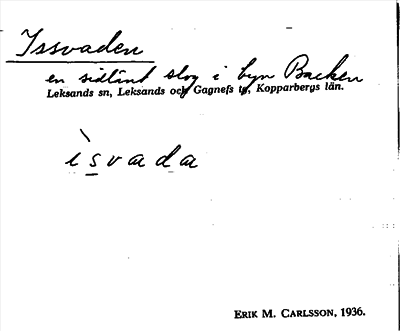 Issvaden
en sidlänt slog i byn Backen
Leksands sn, Leksands och Gagnefs tg, Kopparbergs län.
ìsvada
ERIK M. CARLSSON, 1936.